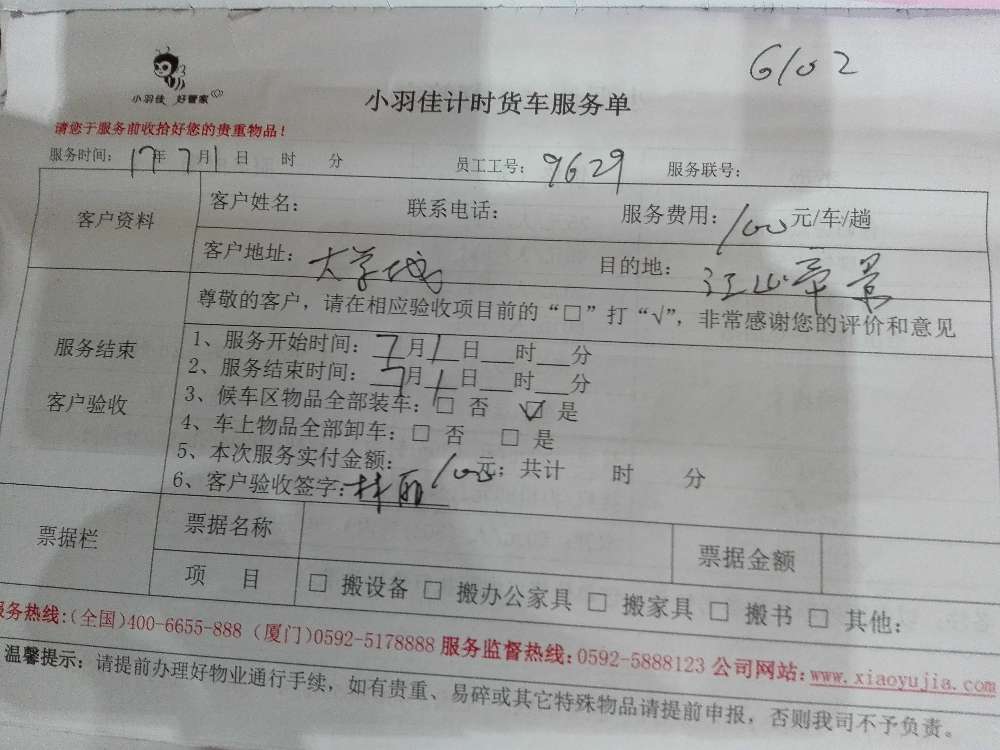 6/02
小羽佳 好管家
小羽佳计时货车服务单
请您于服务前收拾好您的贵重物品！
服务时间：17年7月1日 时 分 员工工号：9629 服务联号：
客户资料
客户姓名： 联系电话： 服务费用：100元/车/趟
客户地址：大学城 目的地：江山帝景
服务结束
客户验收
尊敬的客户，请在相应验收项目前的“□”打“√”，非常感谢您的评价和意见
1、服务开始时间：7月1日__时__分
2、服务结束时间：7月1日__时__分
3、候车区物品全部装车：□ 否 ☑ 是
4、车上物品全部卸车：□ 否 □ 是
5、本次服务实付金额：100元；共计 时 分
6、客户验收签字：林丽
票据栏
票据名称 票据金额
项 目 □ 搬设备 □ 搬办公家具 □ 搬家具 □ 搬书 □ 其他：
服务热线：(全国)400-6655-888 (厦门)0592-5178888 服务监督热线：0592-5888123 公司网站：www.xiaoyujia.com
温馨提示：请提前办理好物业通行手续，如有贵重、易碎或其它特殊物品请提前申报，否则我司不予负责。